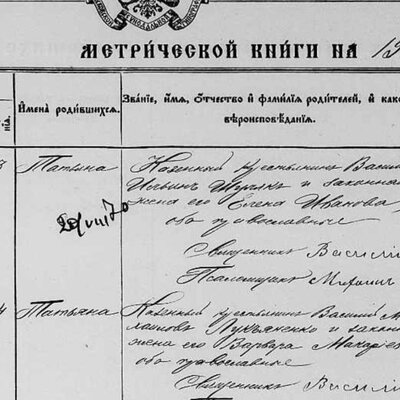 МЕТРИ́ЧЕСКОЙ КНИ́ГИ НА 19
И҆мена̀ роди́вшихсѧ.
Зва́нїе, и҆́мѧ, о҆́тчество и҆ фами́лїѧ роди́телей, и҆ како
вѣроисповѣ́данїѧ.
нїѧ.
3 Татьяна
Казенный крестьянинъ Васил
Ильинъ и законна
жена его Елена Иванова,
оба православные
29/VIII 70
Священникъ Васили
Псаломщикъ Михаилъ
4 Татьяна
Казенный крестьянинъ Василий М
Лукьяненко и закон
жена его Варвара Макарие
оба православные
Священникъ Васили